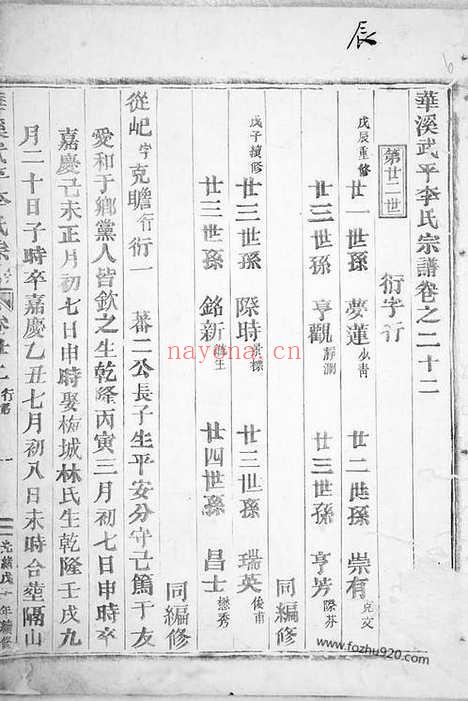 辰
6
華溪武平李氏宗譜卷之二十二
第廿二世
衍字行
戊辰重修
廿一世孫 夢蓮 廿二世孫 崇有 克文
廿三世孫 亨觀 廿三世孫 亨芳 際芬
同編修
戊子續修
廿三世孫 際時 景標 廿三世孫 瑞英 俊甫
廿三世孫 銘新 廿四世孫 昌士 懋秀
同編修
從屺字克瞻行衍一 蕃二公長子生平安分守己篤于友
愛和于鄉黨人皆欽之生乾隆丙寅三月初七日申時卒
嘉慶己未正月初七日申時娶梅城林氏生乾隆壬戌九
月二十日子時卒嘉慶乙丑七月初八日未時合塟隔山
nayona.cn
www.fozhu920.com